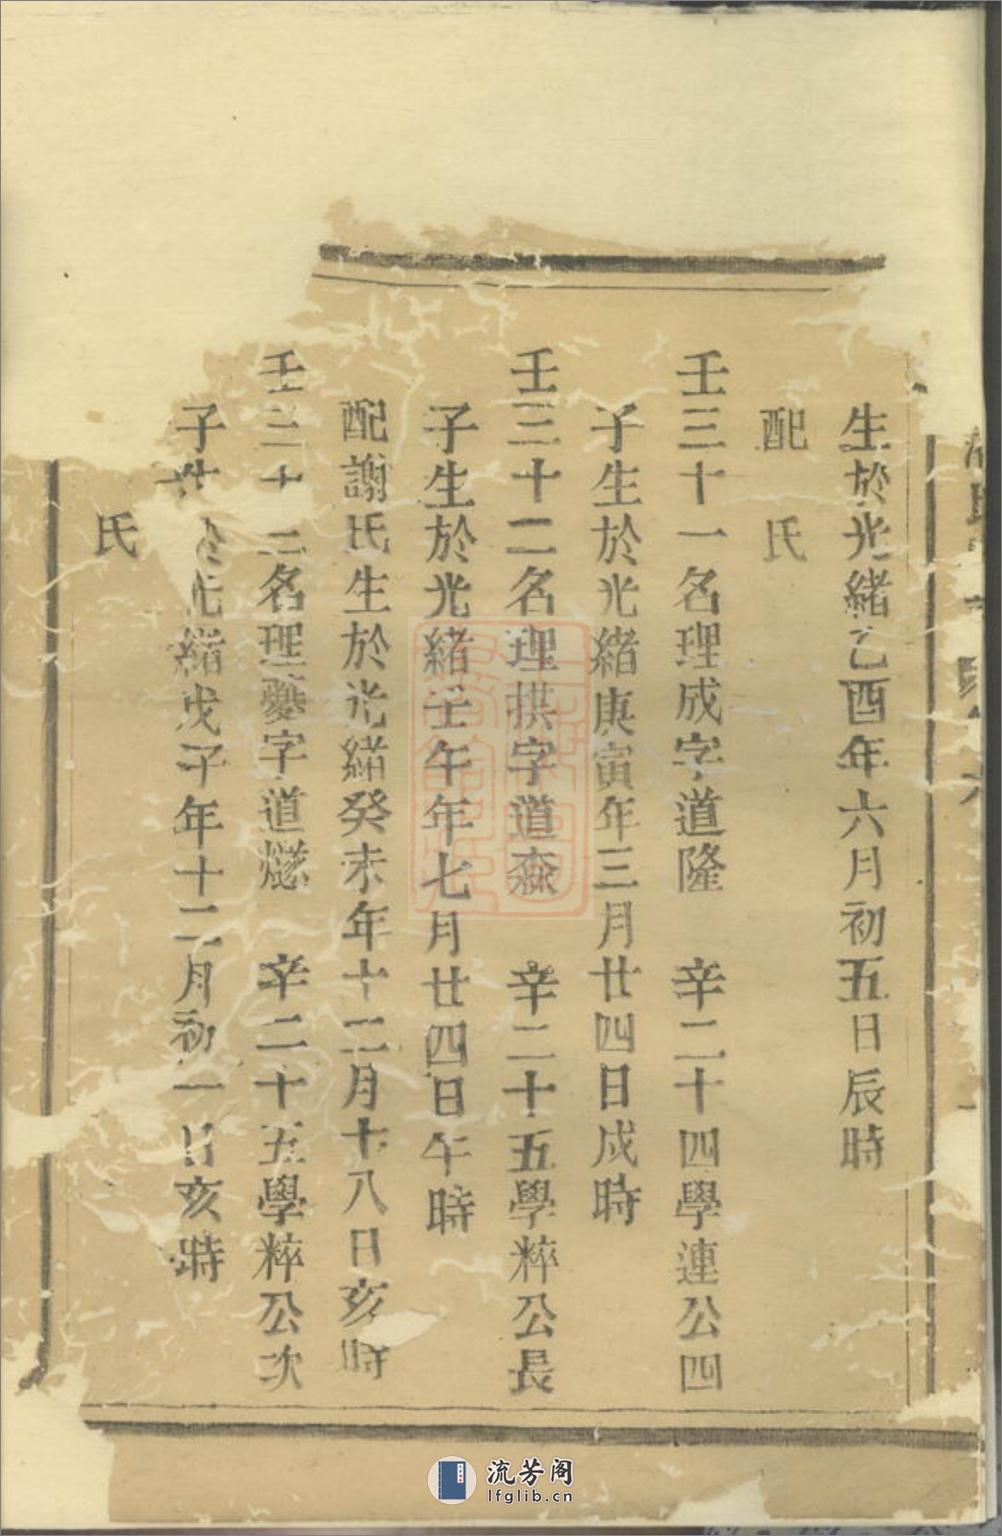 生於光緒乙酉年六月初五日辰時
配 氏
壬三十一名理成字道隆 辛二十四學連公四
子生於光緒庚寅年三月廿四日戌時
壬三十二名理拱字道森 辛二十五學粹公長
子生於光緒壬午年七月廿四日午時
配謝氏生於光緒癸未年十二月十八日亥時
壬三十三名理 字道 辛二十五學粹公次
子生於光緒戊子年十二月初一日亥時
氏
流芳阁
lfglib.cn